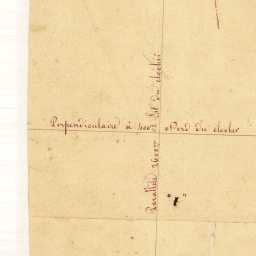 Perpendiculaire à 400m Nord du clocher
Parallèle 2600m Est du clocher
"1"